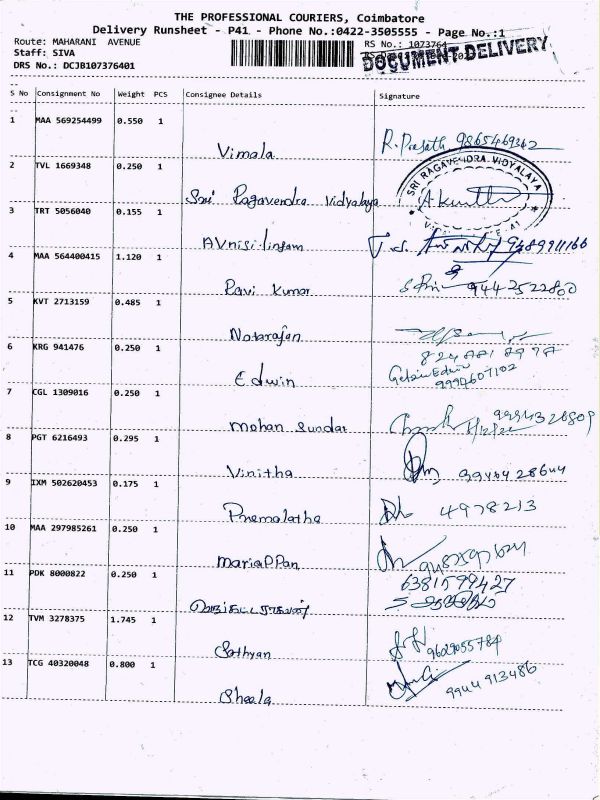 THE PROFESSIONAL COURIERS, Coimbatore
Delivery Runsheet - P41 - Phone No.:0422-3505555 - Page No.:1
Route: MAHARANI AVENUE
RS No.: 1073764
Staff: SIVA
DOCUMENT DELIVERY
DRS No.: DCJB107376401
S No Consignment No Weight PCS Consignee Details Signature
1 MAA 569254499 0.550 1 Vimala R. Prasath 9865469362
2 TVL 1669348 0.250 1 Sri Ragavendra Vidyalaya SRI RAGAVENDRA VIDYALAYA
3 TRT 5056040 0.155 1 AVnisilingam 9489911166
4 MAA 564400415 1.120 1 Ravi Kumar 9442522800
5 KVT 2713159 0.485 1 Natarajan
6 KRG 941476 0.250 1 Edwin 9994607102
7 CGL 1309016 0.250 1 Mohan Sundar
8 PGT 6216493 0.295 1 Vinitha
9 IXM 502620453 0.175 1 Premalatha 4978213
10 MAA 297985261 0.250 1 MariaPPan
11 PDK 8000822 0.250 1 6381599427
12 TVM 3278375 1.745 1 Sathyan 9629055784
13 TCG 40320048 0.800 1 Sheela 9944913486